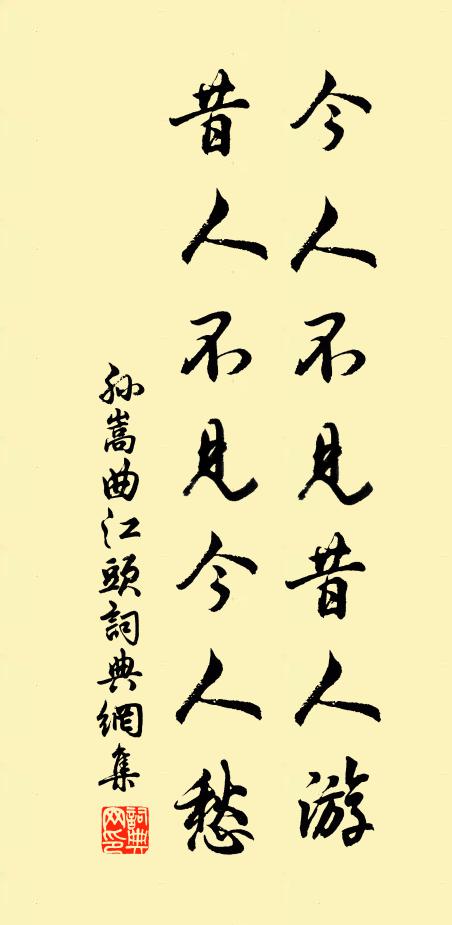 今人不見昔人游
昔人不見今人愁
孫嵩曲江頭詞典網集
詞典
网印